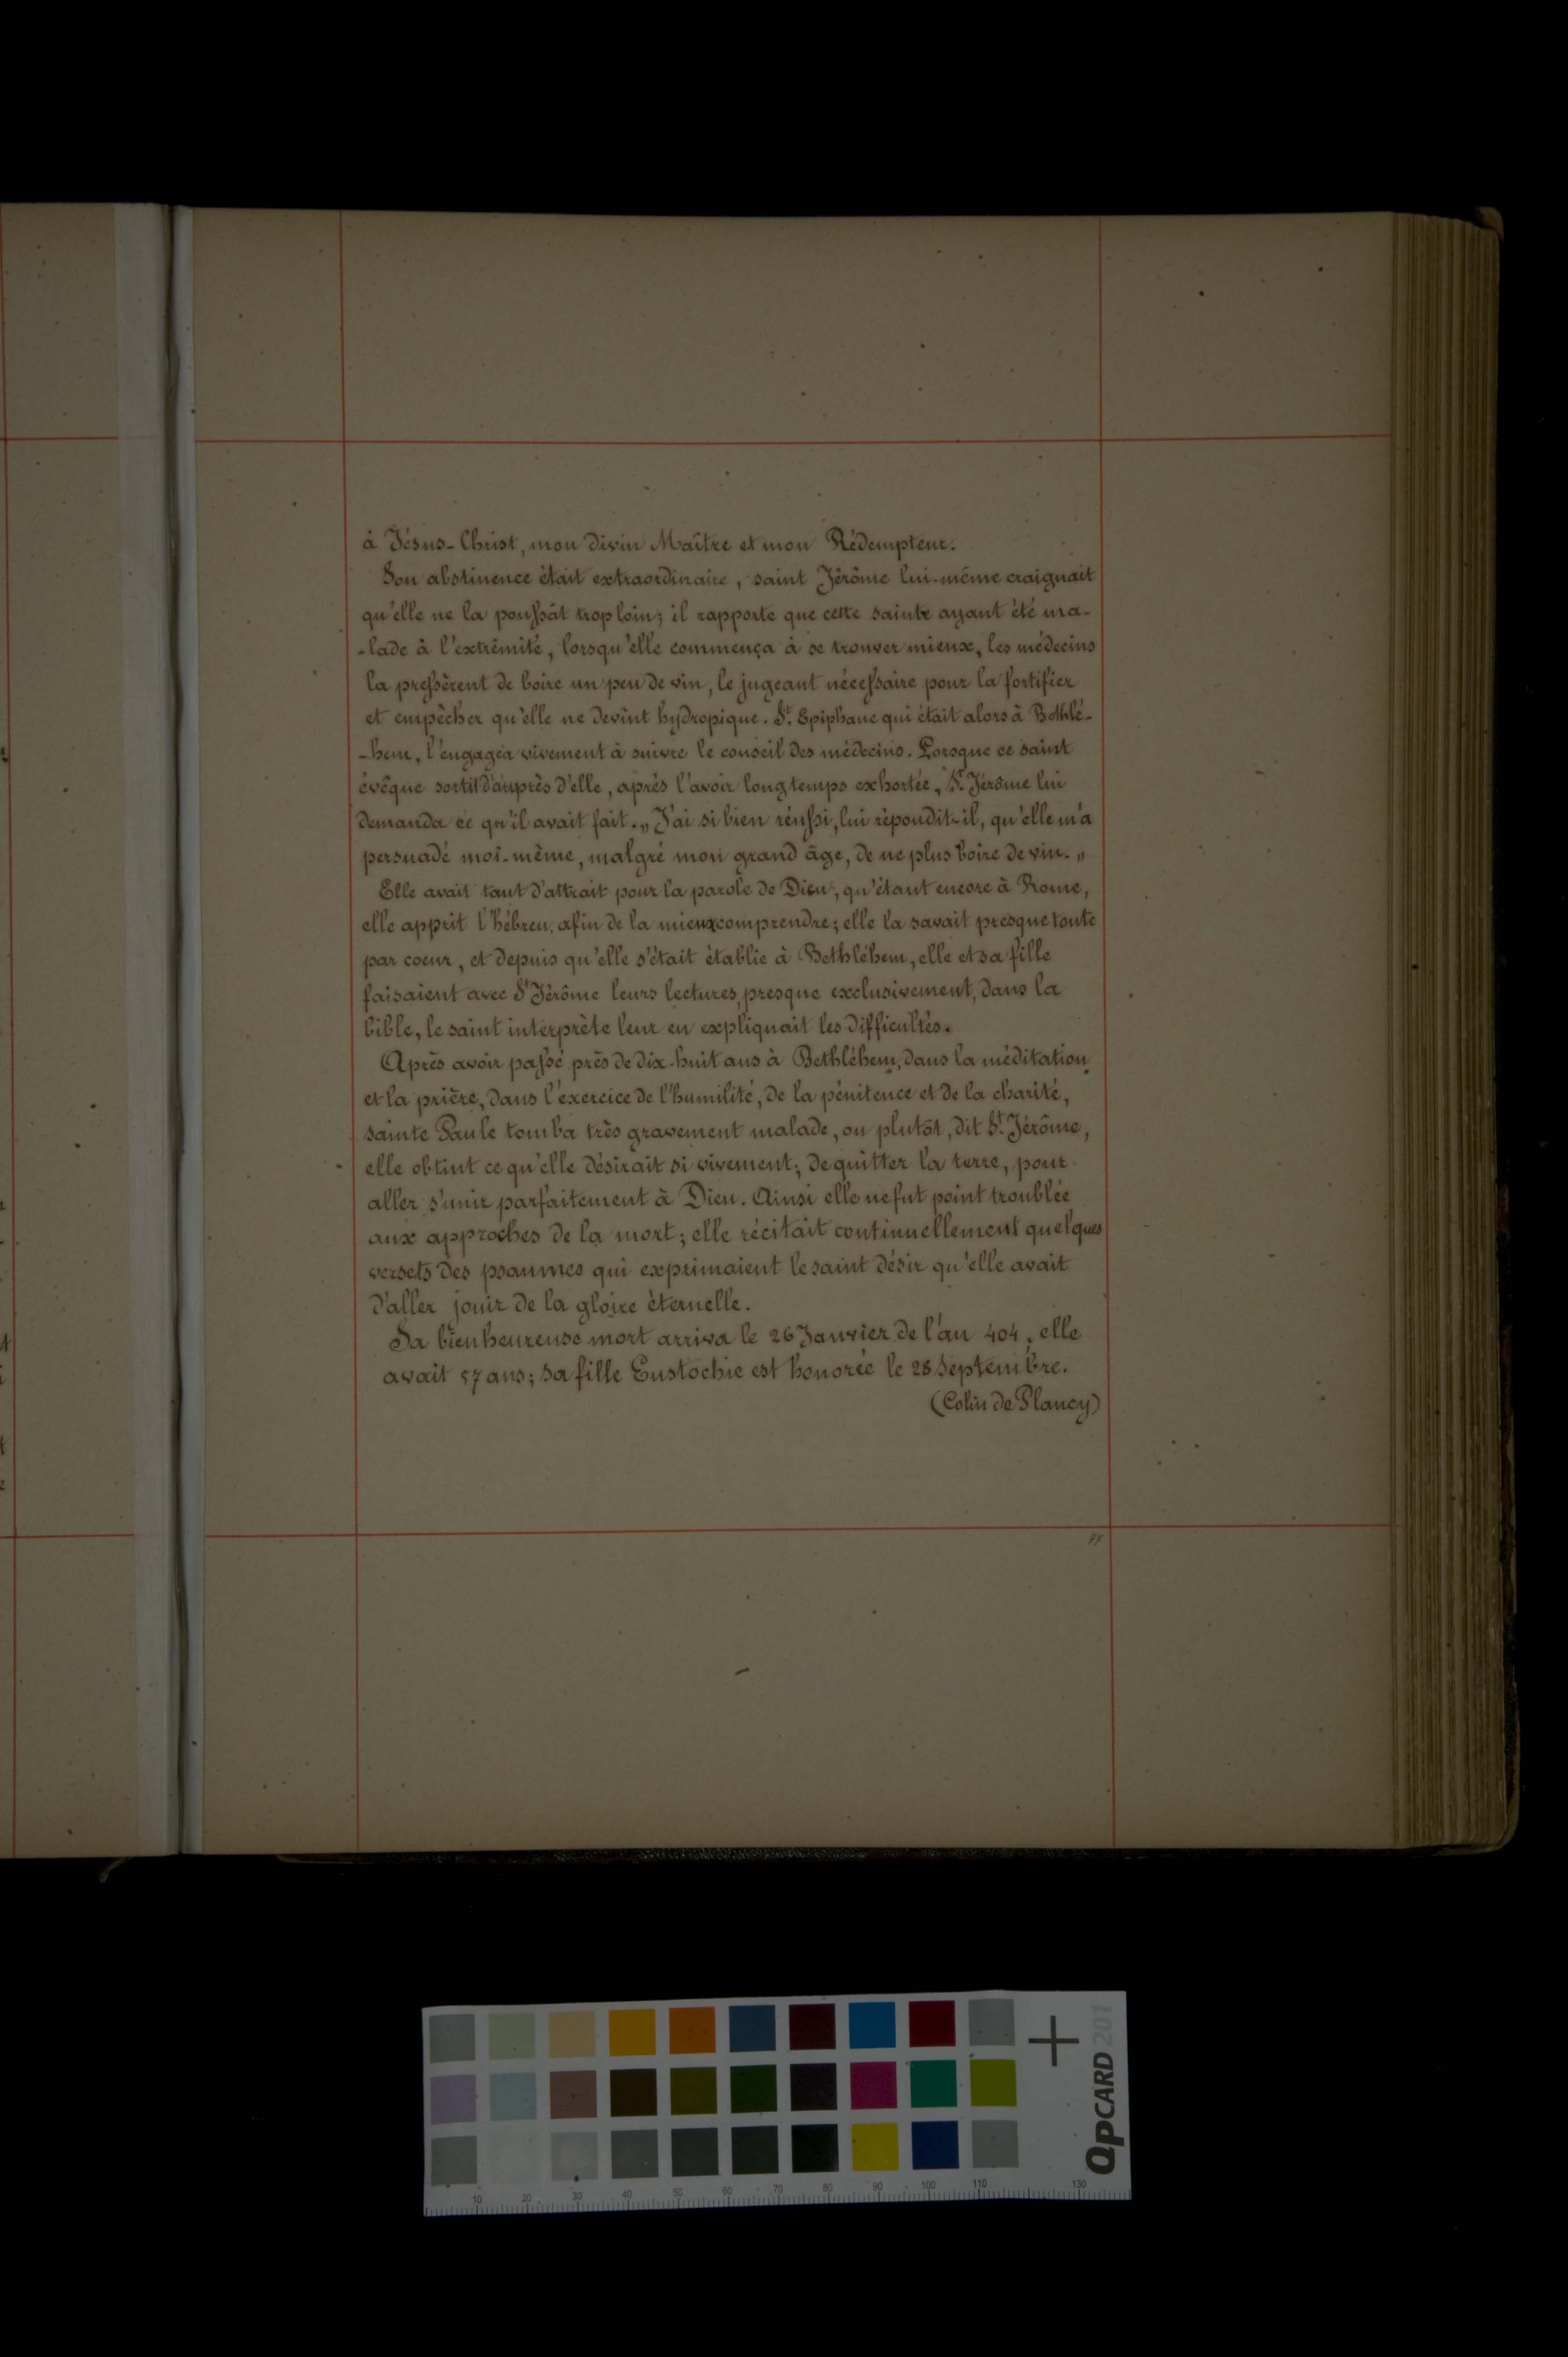 à Jésus-Christ, mon divin Maître et mon Rédempteur.
Son abstinence était extraordinaire, saint Jérôme lui-même craignait
qu'elle ne la poussât trop loin; il rapporte que cette sainte ayant été ma-
-lade à l'extrémité, lorsqu'elle commença à se trouver mieux, les médecins
la pressèrent de boire un peu de vin, le jugeant nécessaire pour la fortifier
et empêcher qu'elle ne devînt hydropique. St. Epiphane qui était alors à Bethlé-
-hem, l'engagea vivement à suivre le conseil des médecins. Lorsque ce saint
évêque sortit d'auprès d'elle, après l'avoir longtemps exhortée, St. Jérôme lui
demanda ce qu'il avait fait. „ J'ai si bien réussi, lui répondit-il, qu'elle m'a
persuadé moi-même, malgré mon grand âge, de ne plus boire de vin. „
Elle avait tant d'attrait pour la parole de Dieu, qu'étant encore à Rome,
elle apprit l'hébreu, afin de la mieux comprendre; elle la savait presque toute
par coeur, et depuis qu'elle s'était établie à Bethléhem, elle et sa fille
faisaient avec St Jérôme leurs lectures, presque exclusivement, dans la
bible, le saint interprète leur en expliquait les difficultés.
Après avoir passé près de dix-huit ans à Bethléhem, dans la méditation
et la prière, dans l'exercice de l'humilité, de la pénitence et de la charité,
sainte Paule tomba très gravement malade, ou plutôt, dit St. Jérôme,
elle obtint ce qu'elle désirait si vivement; de quitter la terre, pour
aller s'unir parfaitement à Dieu. Ainsi elle ne fut point troublée
aux approches de la mort; elle récitait continuellement quelques
versets des psaumes qui exprimaient le saint désir qu'elle avait
d'aller jouir de la gloire éternelle.
Sa bienheureuse mort arriva le 26 Janvier de l'an 404, elle
avait 57 ans; sa fille Eustochie est honorée le 28 Septembre.
(Colin de Plancy)
QPCARD 201
10 20 30 40 50 60 70 80 90 100 110 130